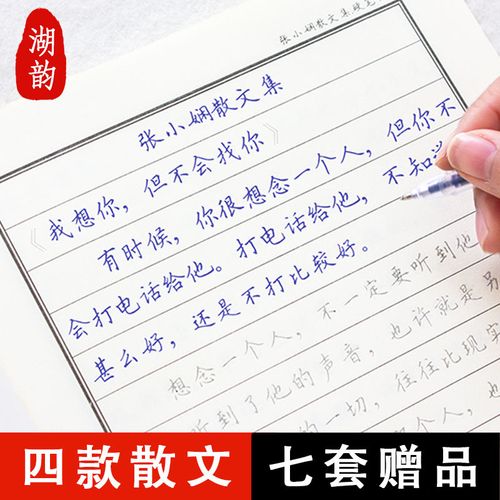 湖韵
张小娴散文集
张小娴散文集
《我想你，但不会找你》
有时候，你很想念一个人，但你不
会打电话给他。打电话给他，不知说
甚么好，还是不打比较好。
想念一个人，不一定要听到他
听到了他的声音，也许就是另
的一切，往往比现实
个人，也
四款散文 七套赠品